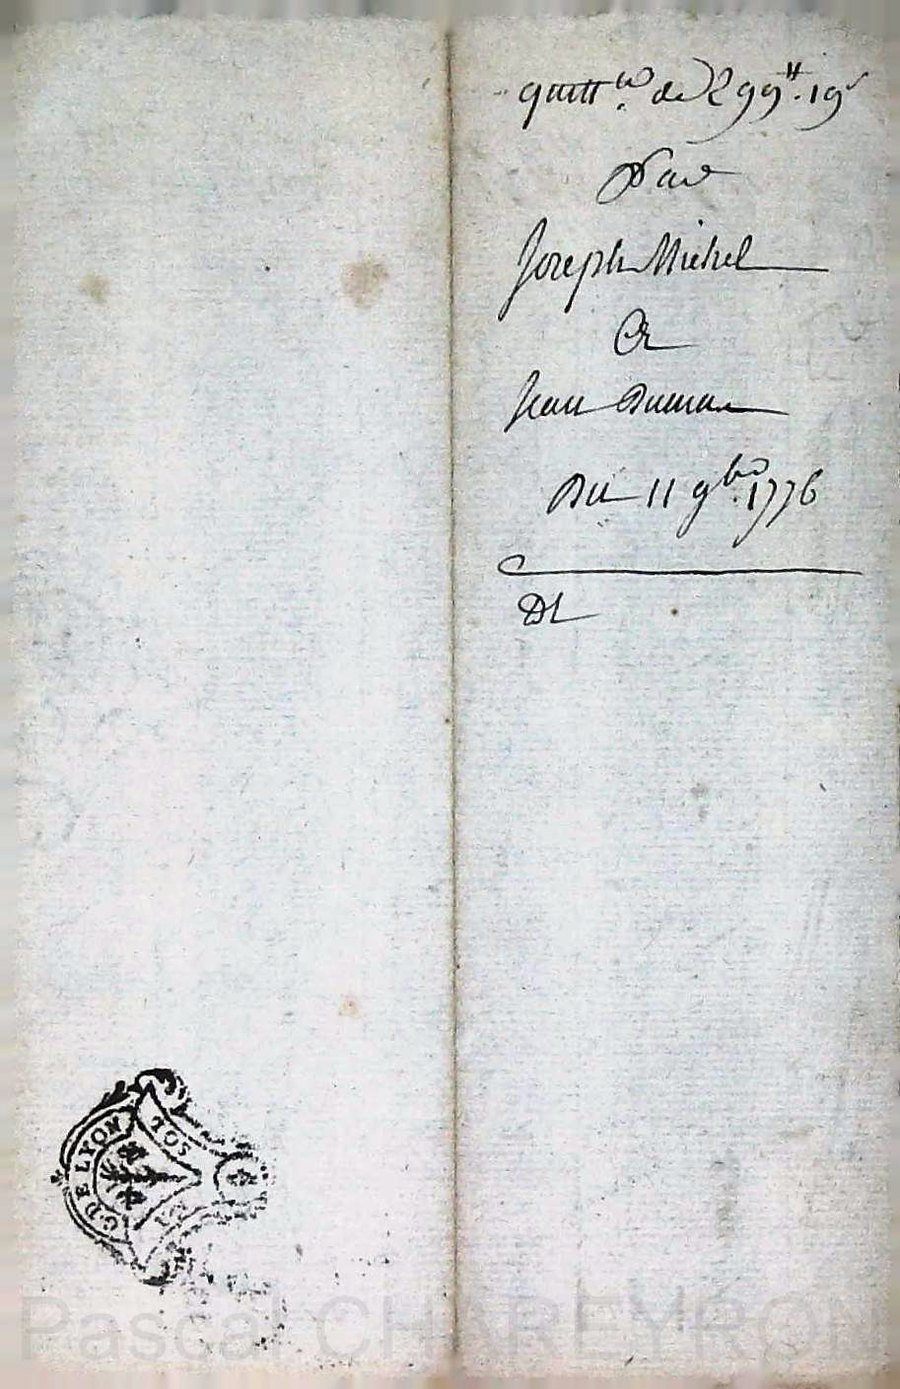 quitt.ce de 299# . 19s
Par
Joseph Michel
A
Jean Dumas
Du 11 9bre 1776
DL
G. DE LYON
SOL
Pascal CHAREYRON